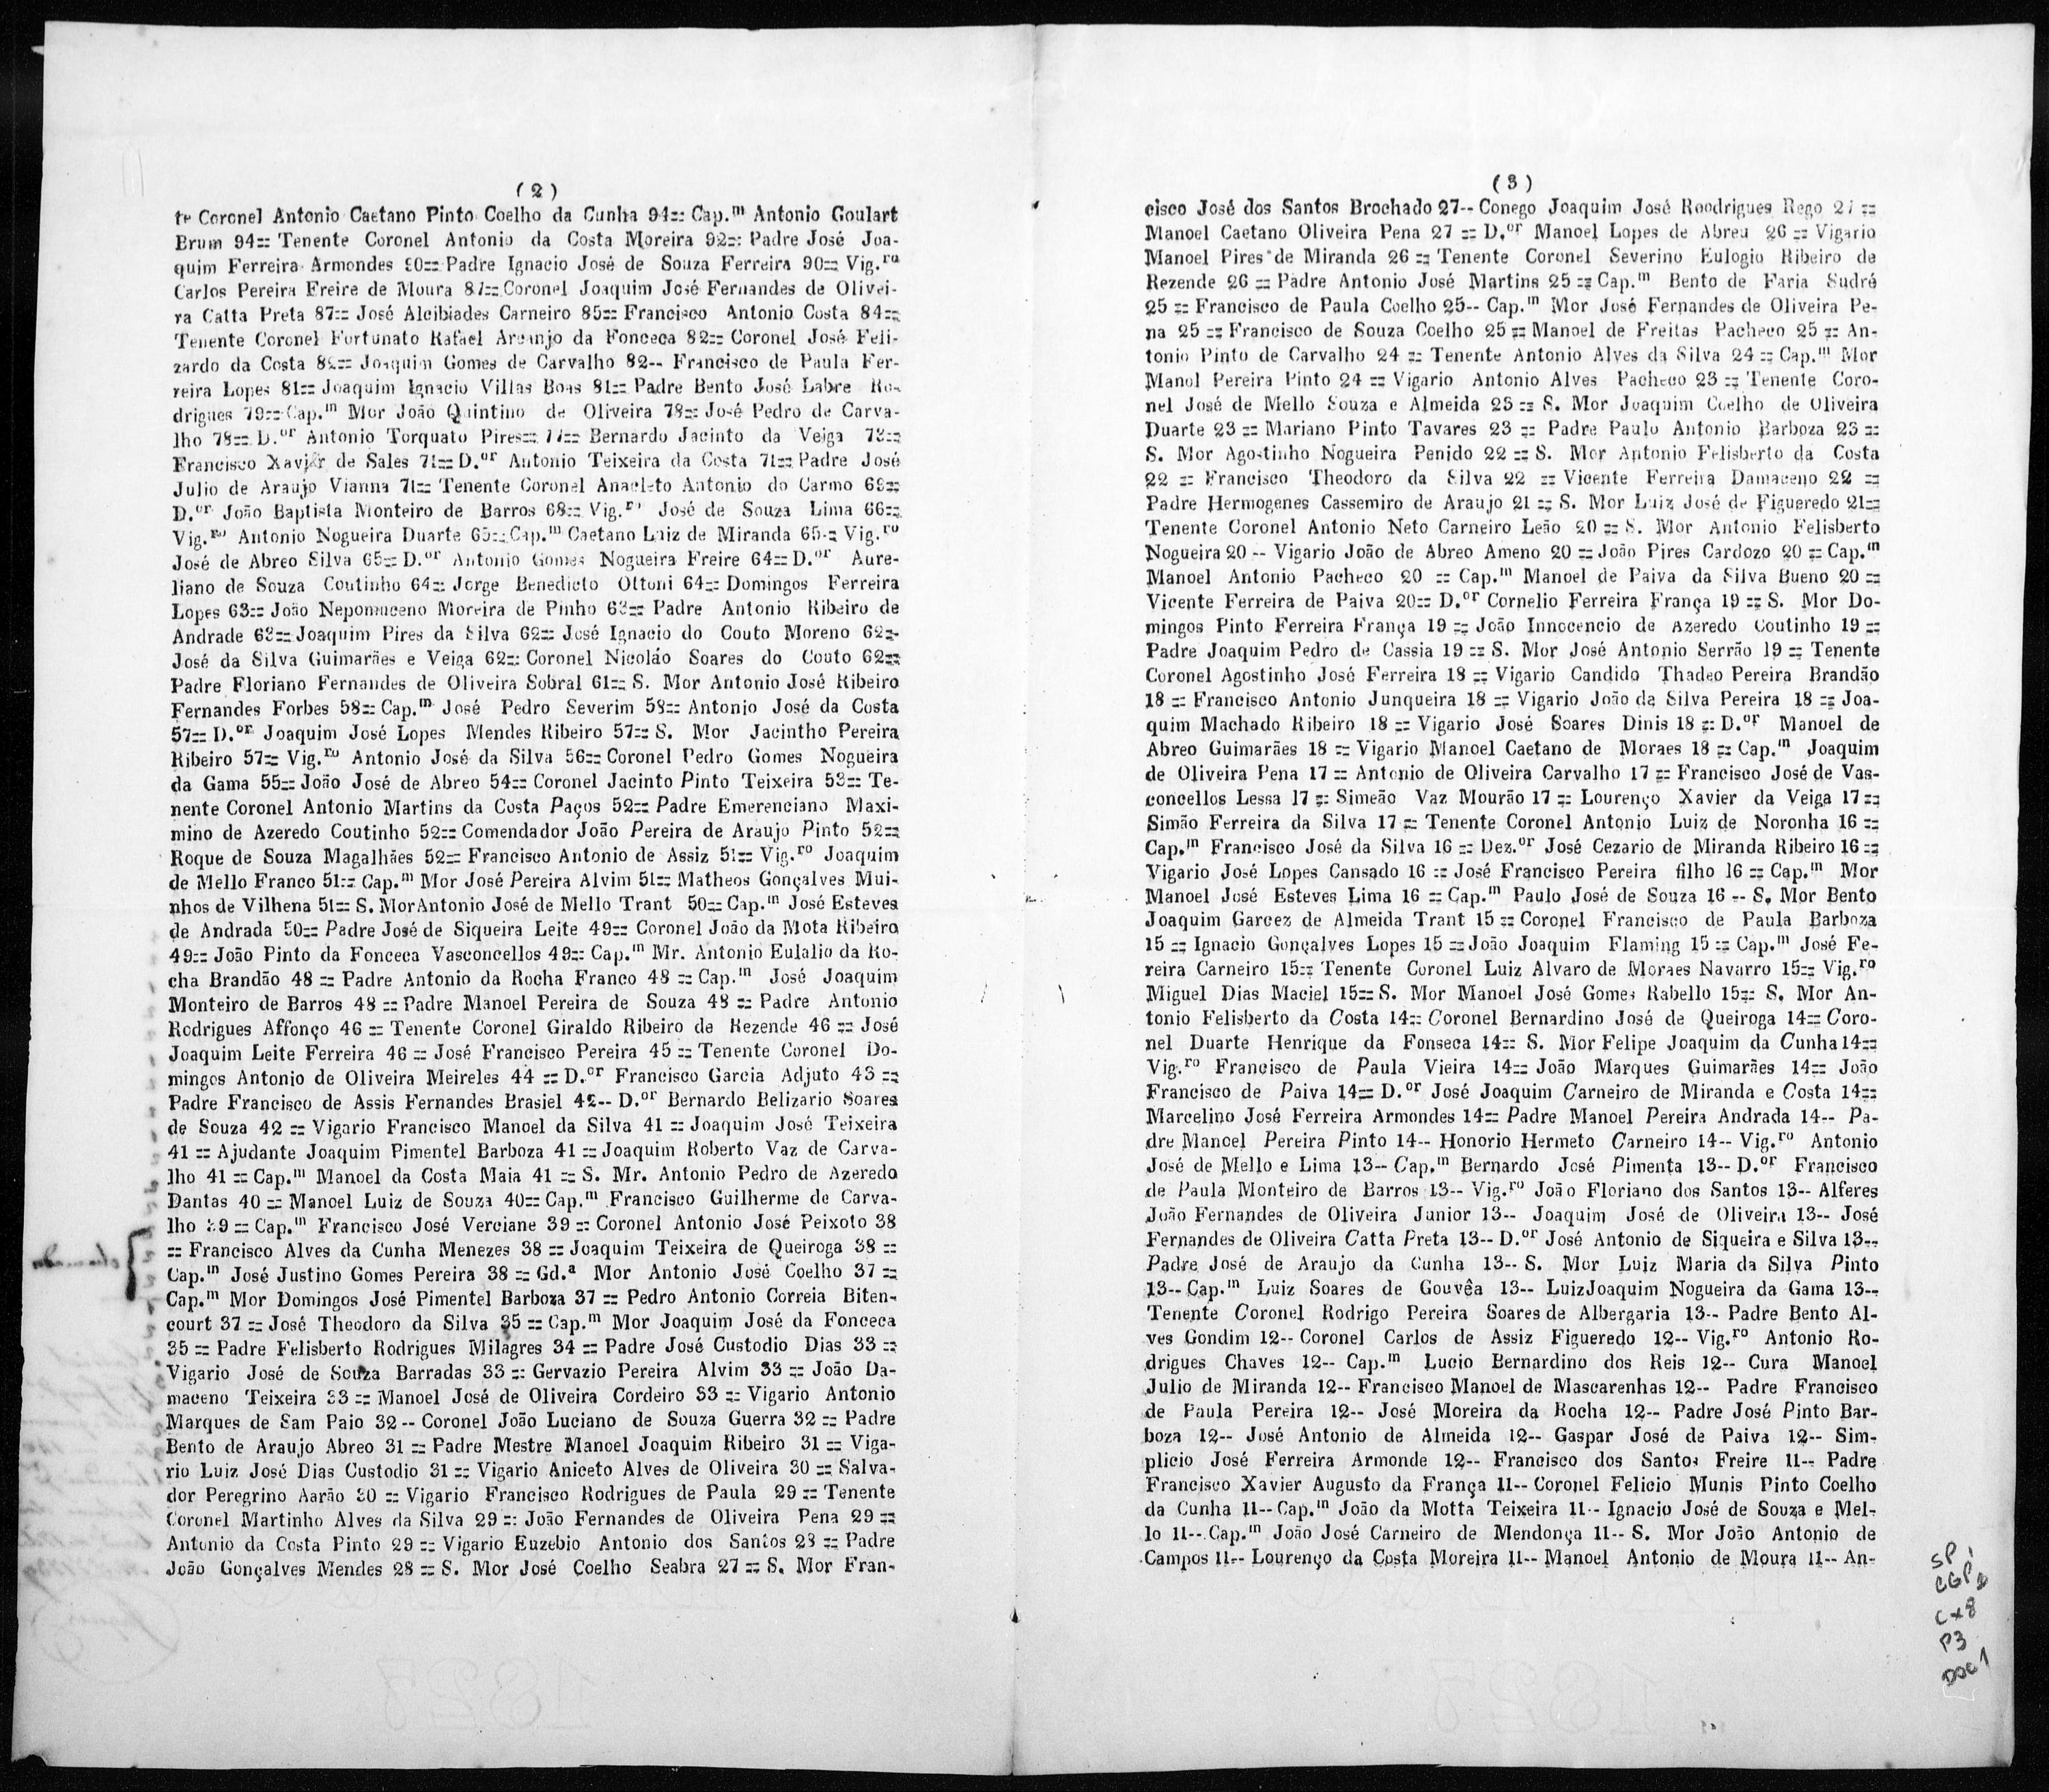 (2)
te Coronel Antonio Caetano Pinto Coelho da Cunha 94== Cap.m Antonio Goulart
Brum 94== Tenente Coronel Antonio da Costa Moreira 92== Padre José Joa-
quim Ferreira Armondes 90== Padre Ignacio José de Souza Ferreira 90== Vig.ro
Carlos Pereira Freire de Moura 87== Coronel Joaquim José Fernandes de Olivei-
ra Catta Preta 87== José Alcibiades Carneiro 85== Francisco Antonio Costa 84==
Tenente Coronel Fortunato Rafael Arcanjo da Fonceca 82== Coronel José Feli-
zardo da Costa 82== Joaquim Gomes de Carvalho 82-- Francisco de Paula Fer-
reira Lopes 81== Joaquim Ignacio Villas Boas 81== Padre Bento José Labre Ro-
drigues 79== Cap.m Mor João Quintino de Oliveira 78== José Pedro de Carva-
lho 78== D.or Antonio Torquato Pires== 77== Bernardo Jacinto da Veiga 73==
Francisco Xavier de Sales 71== D.or Antonio Teixeira da Costa 71== Padre José
Julio de Araujo Vianna 71== Tenente Coronel Anacleto Antonio do Carmo 68==
D.or João Baptista Monteiro de Barros 68== Vig.ro José de Souza Lima 66==
Vig.ro Antonio Nogueira Duarte 65== Cap.m Caetano Luiz de Miranda 65-- Vig.ro
José de Abreo Silva 65== D.or Antonio Gomes Nogueira Freire 64== D.or Aure-
liano de Souza Coutinho 64== Jorge Benedicto Ottoni 64== Domingos Ferreira
Lopes 63== João Nepomuceno Moreira de Pinho 63== Padre Antonio Ribeiro de
Andrade 63== Joaquim Pires da Silva 62== José Ignacio do Couto Moreno 62==
José da Silva Guimarães e Veiga 62== Coronel Nicoláo Soares do Couto 62==
Padre Floriano Fernandes de Oliveira Sobral 61== S. Mor Antonio José Ribeiro
Fernandes Forbes 58== Cap.m José Pedro Severim 58== Antonio José da Costa
57== D.or Joaquim José Lopes Mendes Ribeiro 57== S. Mor Jacintho Pereira
Ribeiro 57== Vig.ro Antonio José da Silva 56== Coronel Pedro Gomes Nogueira
da Gama 55== João José de Abreo 54== Coronel Jacinto Pinto Teixeira 53== Te-
nente Coronel Antonio Martins da Costa Paços 52== Padre Emerenciano Maxi-
mino de Azeredo Coutinho 52== Comendador João Pereira de Araujo Pinto 52==
Roque de Souza Magalhães 52== Francisco Antonio de Assiz 51== Vig.ro Joaquim
de Mello Franco 51== Cap.m Mor José Pereira Alvim 51== Matheos Gonçalves Mui-
nhos de Vilhena 51== S. MorAntonio José de Mello Trant 50== Cap.m José Esteves
de Andrada 50== Padre José de Siqueira Leite 49== Coronel João da Mota Ribeiro
49== João Pinto da Fonceca Vasconcellos 49== Cap.m Mr. Antonio Eulalio da Ro-
cha Brandão 48 == Padre Antonio da Rocha Franco 48 == Cap.m José Joaquim
Monteiro de Barros 48 == Padre Manoel Pereira de Souza 48 == Padre Antonio
Rodrigues Affonço 46 == Tenente Coronel Giraldo Ribeiro de Rezende 46 == José
Joaquim Leite Ferreira 46 == José Francisco Pereira 45 == Tenente Coronel Do-
mingos Antonio de Oliveira Meireles 44 == D.or Francisco Garcia Adjuto 43 ==
Padre Francisco de Assis Fernandes Brasiel 42-- D.or Bernardo Belizario Soares
de Souza 42 == Vigario Francisco Manoel da Silva 41 == Joaquim José Teixeira
41 == Ajudante Joaquim Pimentel Barboza 41 == Joaquim Roberto Vaz de Carva-
lho 41 == Cap.m Manoel da Costa Maia 41 == S. Mr. Antonio Pedro de Azeredo
Dantas 40 == Manoel Luiz de Souza 40== Cap.m Francisco Guilherme de Carva-
lho 39 == Cap.m Francisco José Verciane 39 == Coronel Antonio José Peixoto 38
== Francisco Alves da Cunha Menezes 38 == Joaquim Teixeira de Queiroga 38 ==
Cap.m José Justino Gomes Pereira 38 == Gd.a Mor Antonio José Coelho 37 ==
Cap.m Mor Domingos José Pimentel Barboza 37 == Pedro Antonio Correia Biten-
court 37 == José Theodoro da Silva 35 == Cap.m Mor Joaquim José da Fonceca
35 == Padre Felisberto Rodrigues Milagres 34 == Padre José Custodio Dias 33 ==
Vigario José de Souza Barradas 33 == Gervazio Pereira Alvim 33 == João Da-
maceno Teixeira 33 == Manoel José de Oliveira Cordeiro 33 == Vigario Antonio
Marques de Sam Paio 32 -- Coronel João Luciano de Souza Guerra 32 == Padre
Bento de Araujo Abreo 31 == Padre Mestre Manoel Joaquim Ribeiro 31 == Viga-
rio Luiz José Dias Custodio 31 == Vigario Aniceto Alves de Oliveira 30 == Salva-
dor Peregrino Aarão 30 == Vigario Francisco Rodrigues de Paula 29 == Tenente
Coronel Martinho Alves da Silva 29 == João Fernandes de Oliveira Pena 29 ==
Antonio da Costa Pinto 29 == Vigario Euzebio Antonio dos Santos 28 == Padre
João Gonçalves Mendes 28 == S. Mor José Coelho Seabra 27 == S. Mor Fran-
(3)
cisco José dos Santos Brochado 27-- Conego Joaquim José Roodrigues Rego 27 ==
Manoel Caetano Oliveira Pena 27 == D.or Manoel Lopes de Abreu 26 == Vigario
Manoel Pires de Miranda 26 == Tenente Coronel Severino Eulogio Ribeiro de
Rezende 26 == Padre Antonio José Martins 25 == Cap.m Bento de Faria Sudré
25 == Francisco de Paula Coelho 25-- Cap.m Mor José Fernandes de Oliveira Pe-
na 25 == Francisco de Souza Coelho 25 == Manoel de Freitas Pacheco 25 == An-
tonio Pinto de Carvalho 24 == Tenente Antonio Alves da Silva 24 == Cap.m Mor
Manol Pereira Pinto 24 == Vigario Antonio Alves Pacheco 23 == Tenente Coro-
nel José de Mello Souza e Almeida 23 == S. Mor Joaquim Coelho de Oliveira
Duarte 23 == Mariano Pinto Tavares 23 == Padre Paulo Antonio Barboza 23 ==
S. Mor Agostinho Nogueira Penido 22 == S. Mor Antonio Felisberto da Costa
22 == Francisco Theodoro da Silva 22 == Vicente Ferreira Damaceno 22 ==
Padre Hermogenes Cassemiro de Araujo 21 == S. Mor Luiz José de Figueredo 21==
Tenente Coronel Antonio Neto Carneiro Leão 20 == S. Mor Antonio Felisberto
Nogueira 20 -- Vigario João de Abreo Ameno 20 == João Pires Cardozo 20 == Cap.m
Manoel Antonio Pacheco 20 == Cap.m Manoel de Paiva da Silva Bueno 20 ==
Vicente Ferreira de Paiva 20== D.or Cornelio Ferreira França 19 == S. Mor Do-
mingos Pinto Ferreira França 19 == João Innocencio de Azeredo Coutinho 19 ==
Padre Joaquim Pedro de Cassia 19 == S. Mor José Antonio Serrão 19 == Tenente
Coronel Agostinho José Ferreira 18 == Vigario Candido Thadeo Pereira Brandão
18 == Francisco Antonio Junqueira 18 == Vigario João da Silva Pereira 18 == Joa-
quim Machado Ribeiro 18 == Vigario José Soares Dinis 18 == D.or Manoel de
Abreo Guimarães 18 == Vigario Manoel Caetano de Moraes 18 == Cap.m Joaquim
de Oliveira Pena 17 == Antonio de Oliveira Carvalho 17 == Francisco José de Vas-
concellos Lessa 17 == Simeão Vaz Mourão 17 == Lourenço Xavier da Veiga 17 ==
Simão Ferreira da Silva 17 == Tenente Coronel Antonio Luiz de Noronha 16 ==
Cap.m Francisco José da Silva 16 == Dez.or José Cezario de Miranda Ribeiro 16 ==
Vigario José Lopes Cansado 16 == José Francisco Pereira filho 16 == Cap.m Mor
Manoel José Esteves Lima 16 == Cap.m Paulo José de Souza 16 -- S. Mor Bento
Joaquim Garcez de Almeida Trant 15 == Coronel Francisco de Paula Barboza
15 == Ignacio Gonçalves Lopes 15 == João Joaquim Flaming 15 == Cap.m José Fe-
reira Carneiro 15== Tenente Coronel Luiz Alvaro de Moraes Navarro 15== Vig.ro
Miguel Dias Maciel 15== S. Mor Manoel José Gomes Rabello 15== S. Mor An-
tonio Felisberto da Costa 14== Coronel Bernardino José de Queiroga 14== Coro-
nel Duarte Henrique da Fonseca 14== S. Mor Felipe Joaquim da Cunha 14==
Vig.ro Francisco de Paula Vieira 14== João Marques Guimarães 14== João
Francisco de Paiva 14== D.or José Joaquim Carneiro de Miranda e Costa 14==
Marcelino José Ferreira Armondes 14== Padre Manoel Pereira Andrada 14-- Pa-
dre Manoel Pereira Pinto 14-- Honorio Hermeto Carneiro 14-- Vig.ro Antonio
José de Mello e Lima 13-- Cap.m Bernardo José Pimenta 13-- D.or Francisco
de Paula Monteiro de Barros 13-- Vig.ro João Floriano dos Santos 13-- Alferes
João Fernandes de Oliveira Junior 13-- Joaquim José de Oliveira 13-- José
Fernandes de Oliveira Catta Preta 13-- D.or José Antonio de Siqueira e Silva 13--
Padre José de Araujo da Cunha 13-- S. Mor Luiz Maria da Silva Pinto
13-- Cap.m Luiz Soares de Gouvêa 13-- LuizJoaquim Nogueira da Gama 13--
Tenente Coronel Rodrigo Pereira Soares de Albergaria 13-- Padre Bento Al-
ves Gondim 12-- Coronel Carlos de Assiz Figueredo 12-- Vig.ro Antonio Ro-
drigues Chaves 12-- Cap.m Lucio Bernardino dos Reis 12-- Cura Manoel
Julio de Miranda 12-- Francisco Manoel de Mascarenhas 12-- Padre Francisco
de Paula Pereira 12-- José Moreira da Rocha 12-- Padre José Pinto Bar-
boza 12-- José Antonio de Almeida 12-- Gaspar José de Paiva 12-- Sim-
plicio José Ferreira Armonde 12-- Francisco dos Santos Freire 11-- Padre
Francisco Xavier Augusto da França 11-- Coronel Felicio Munis Pinto Coelho
da Cunha 11-- Cap.m João da Motta Teixeira 11-- Ignacio José de Souza e Mel-
lo 11-- Cap.m João José Carneiro de Mendonça 11-- S. Mor João Antonio de
Campos 11-- Lourenço da Costa Moreira 11-- Manoel Antonio de Moura 11-- An-
SP
CGP2
Cx8
P3
DOC1